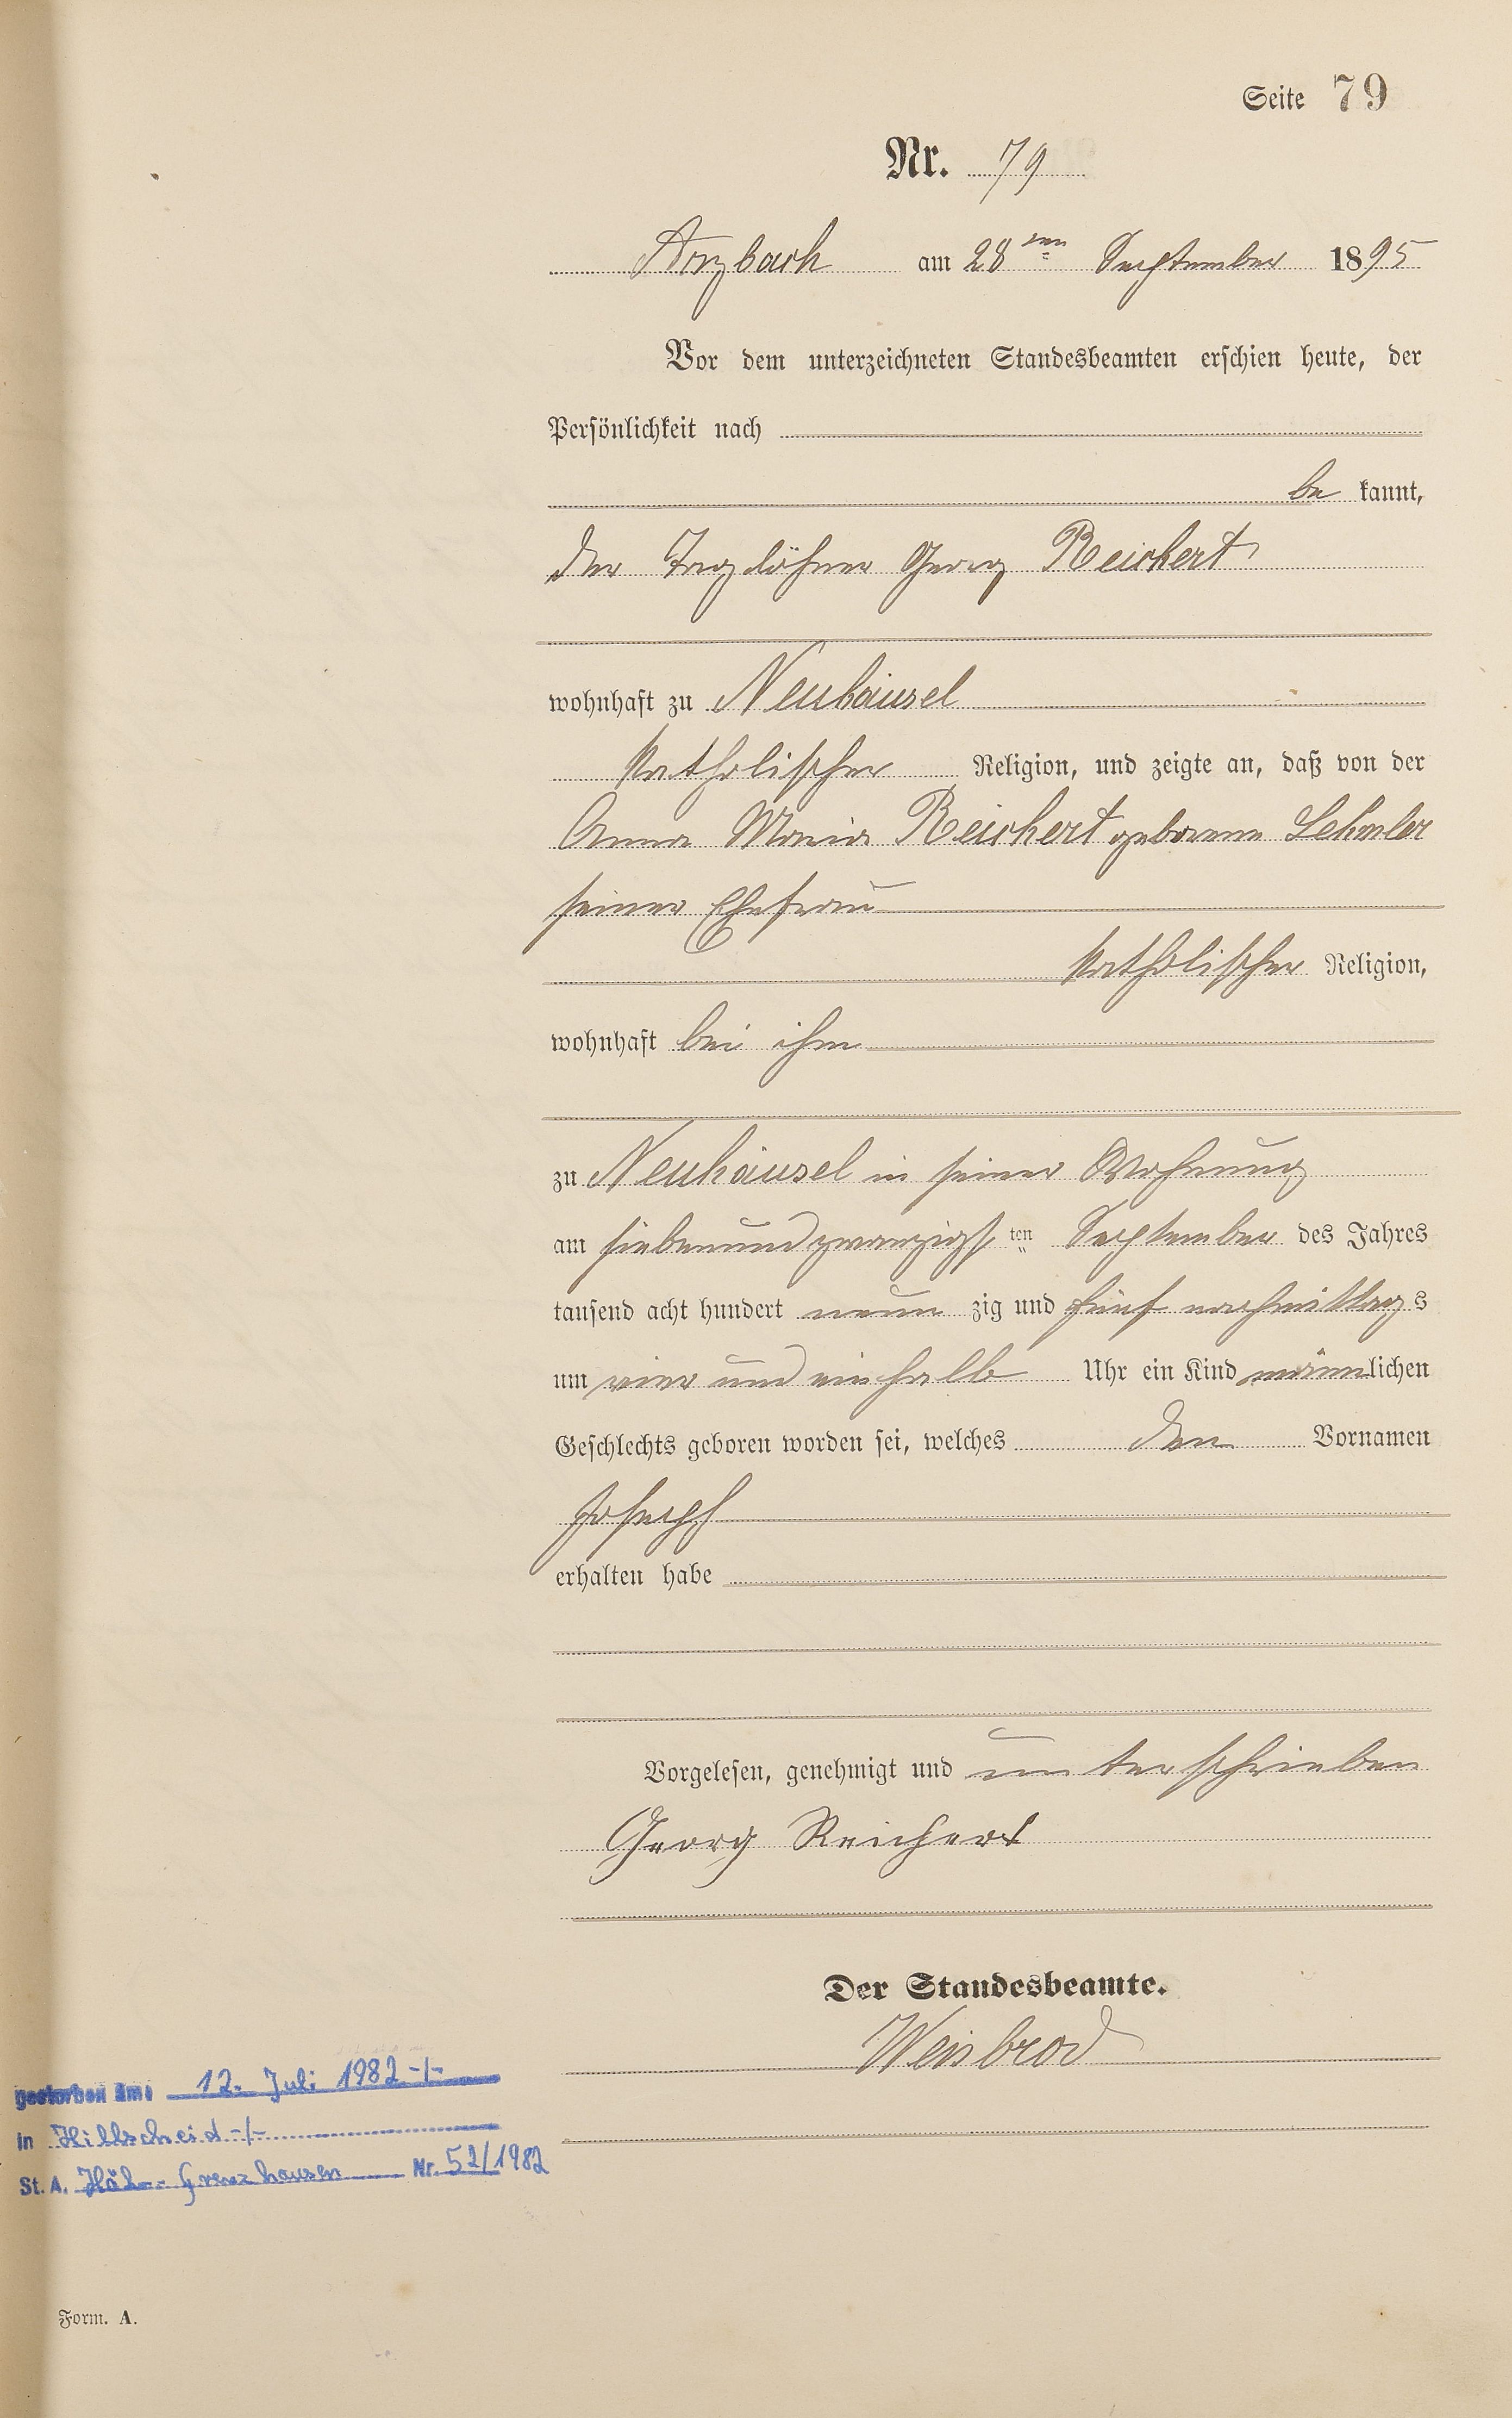 Seite 79
Nr. 79
Arzbach am 28ten September 1895
Vor dem unterzeichneten Standesbeamten erschien heute, der
Persönlichkeit nach
be kannt,
der Taglöhner Georg Reichert
wohnhaft zu Neuhäusel
katholischer Religion, und zeigte an, daß von der
Anna Maria Reichert geborene
seiner Ehefrau
katholischer Religion,
wohnhaft bei ihm
zu Neuhäusel in seiner Wohnung
am siebenundzwanzigsten September des Jahres
tausend acht hundert neun zig und fünf nachmittags
um vier und einhalb Uhr ein Kind männlichen
Geschlechts geboren worden sei, welches den Vornamen
Joseph
erhalten habe
Vorgelesen, genehmigt und unterschrieben
Georg Reichert
Der Standesbeamte.
Weisbrod
gestorben am: 12. Juli 1982 -/-
in Hillscheid -/-
St. A. Höhr-Grenzhausen Nr. 52/1982
Form. A.